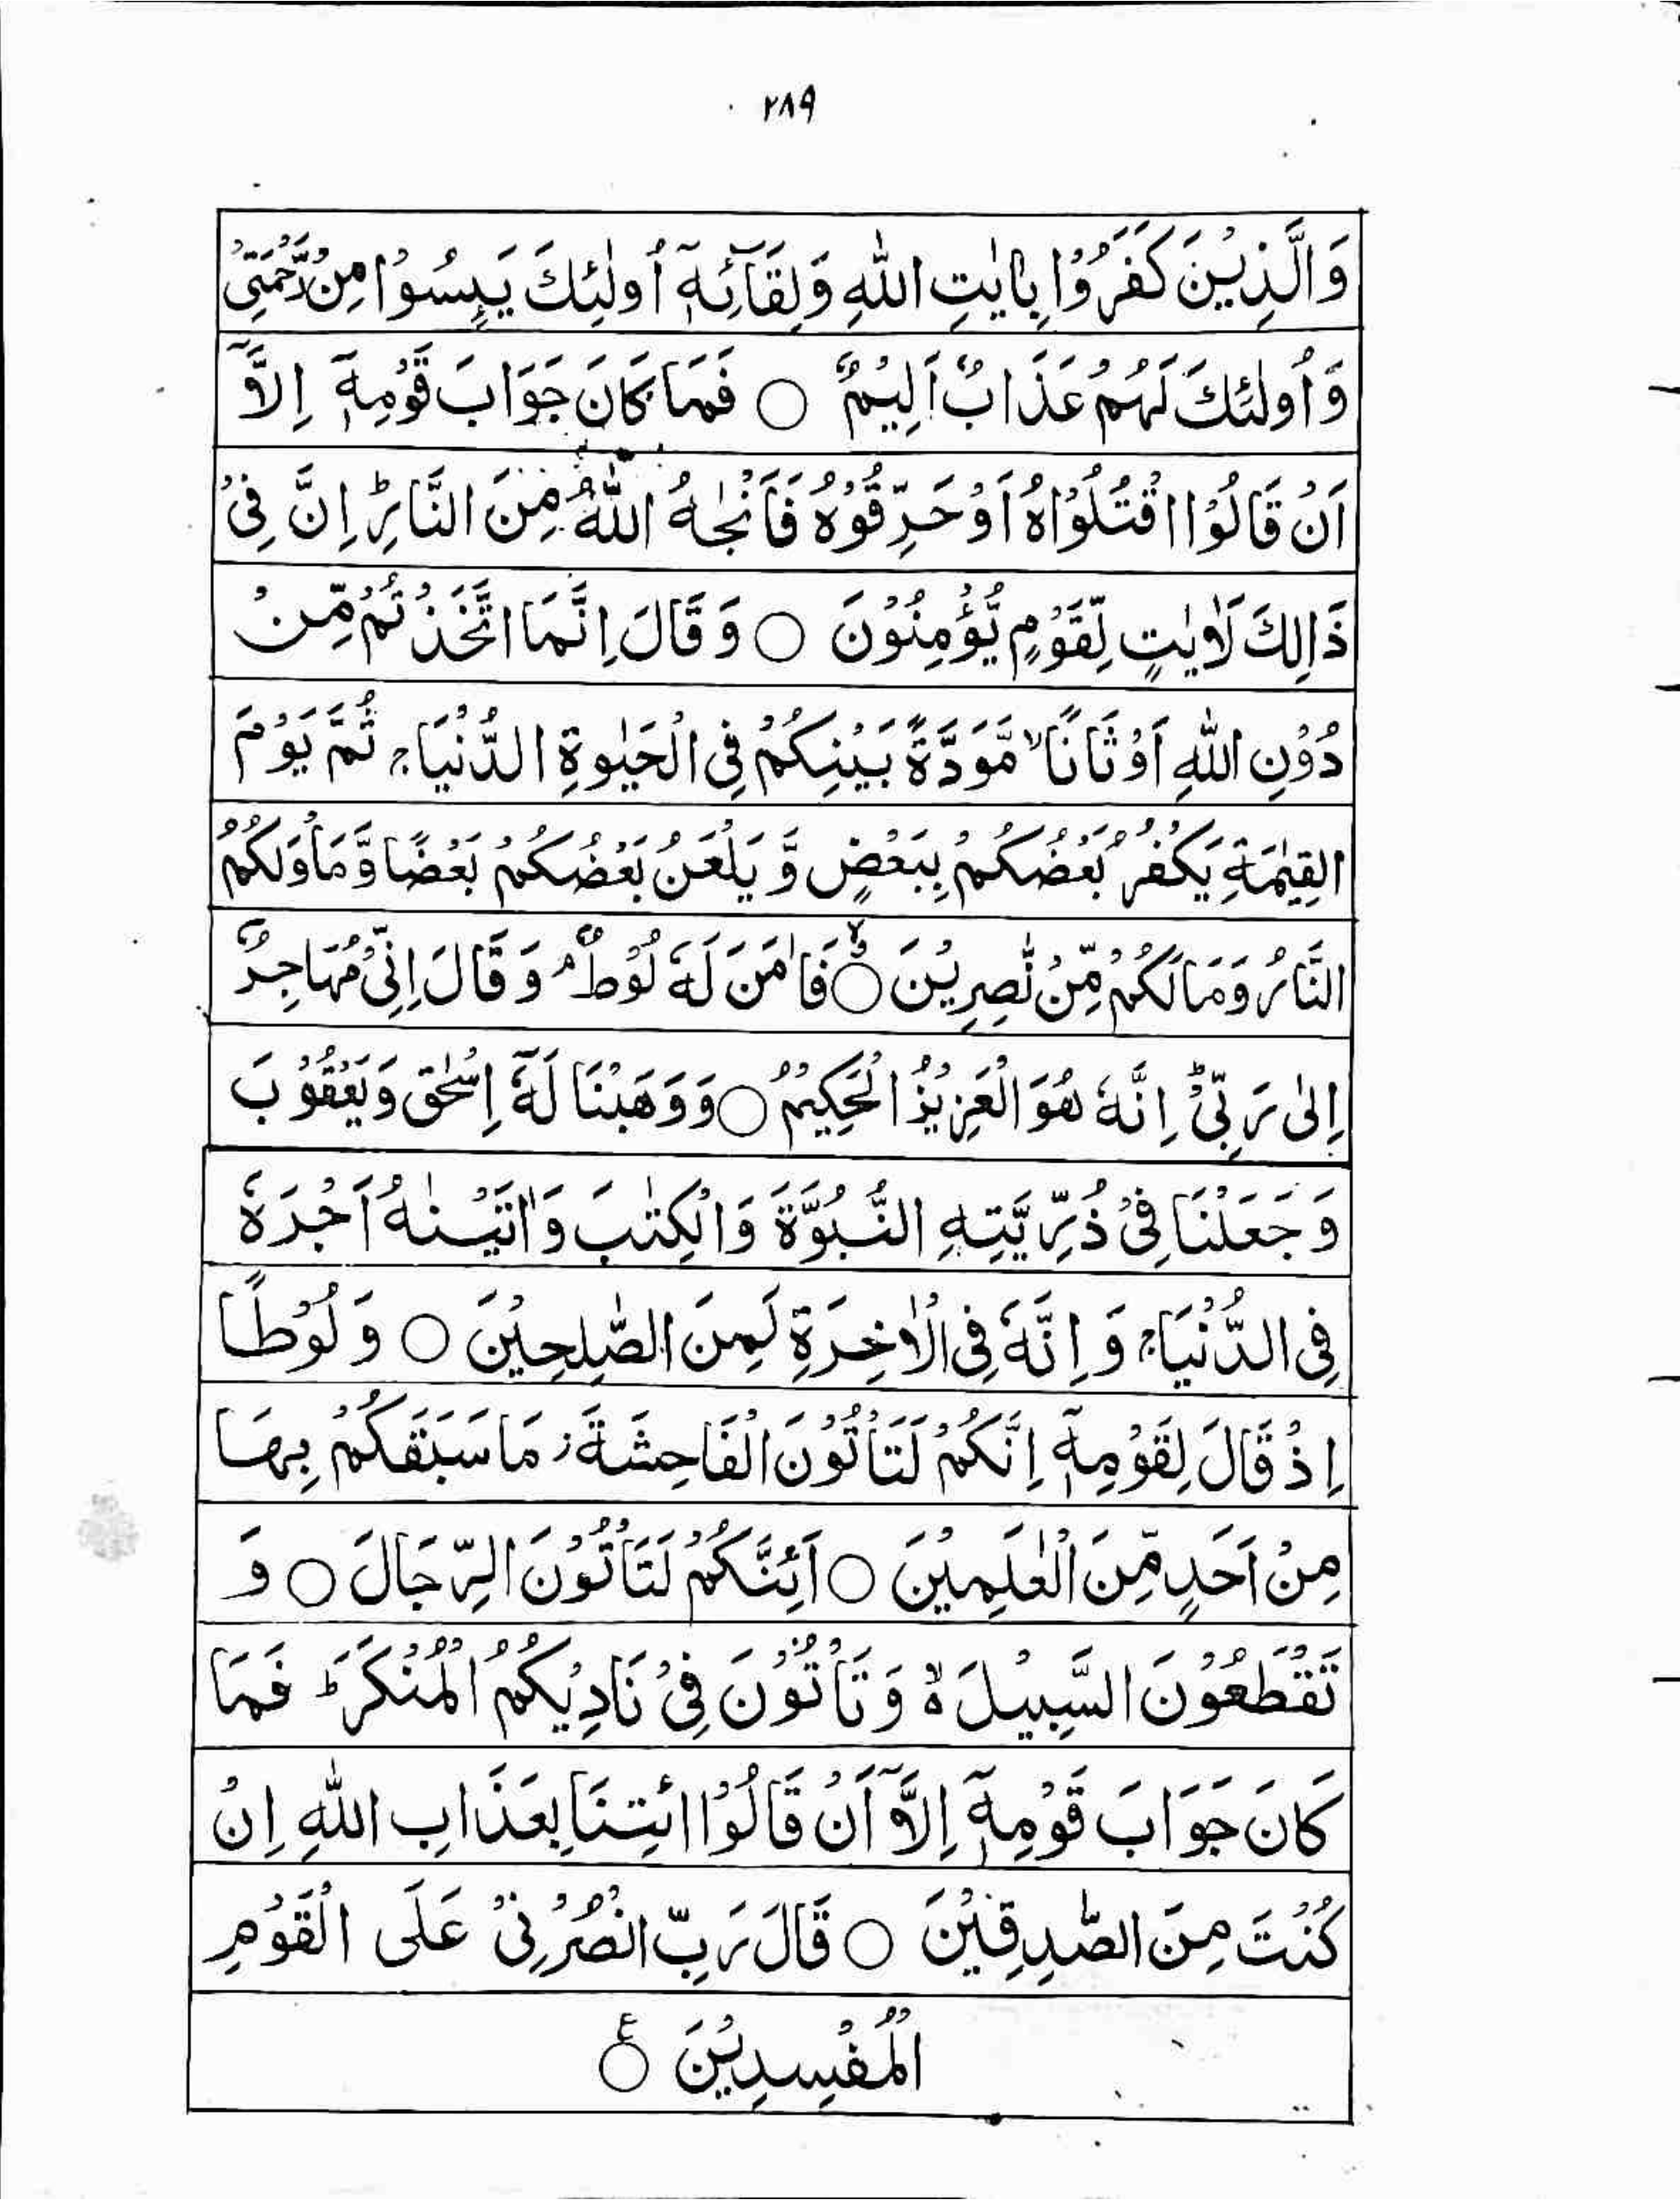 ۲۸۹
وَالَّذِيْنَ كَفَرُوْا بِاٰيٰتِ اللّٰهِ وَلِقَآئِهٖٓ اُولٰٓئِكَ يَئِسُوْا مِنْ رَّحْمَتِيْ
وَاُولٰٓئِكَ لَهُمْ عَذَابٌ اَلِيْمٌ ○ فَمَا كَانَ جَوَابَ قَوْمِهٖٓ اِلَّآ
اَنْ قَالُوْا اقْتُلُوْاهُ اَوْ حَرِّقُوْهُ فَاَنْجٰهُ اللّٰهُ مِنَ النَّارِ ؕ اِنَّ فِيْ
ذَالِكَ لَاٰيٰتٍ لِّقَوْمٍ يُّؤْمِنُوْنَ ○ وَقَالَ اِنَّمَا اتَّخَذْتُمْ مِّنْ
دُوْنِ اللّٰهِ اَوْثَانًا ۙ مَّوَدَّةً بَيْنِكُمْ فِي الْحَيٰوةِ الدُّنْيَا ۚ ثُمَّ يَوْمَ
القِيٰمَةِ يَكْفُرُ بَعْضُكُمْ بِبَعْضٍ وَّيَلْعَنُ بَعْضُكُمْ بَعْضًا وَّمَاْوَكُمُ
النَّارُ وَمَا لَكُمْ مِّنْ نّٰصِرِيْنَ ○ فَاٰمَنَ لَهٗ لُوْطٌ ۘ وَقَالَ اِنِّيْ مُهَاجِرٌ
اِلٰى رَبِّيْ ؕ اِنَّهٗ هُوَ الْعَزِيْزُ الْحَكِيْمُ ○ وَوَهَبْنَا لَهٗٓ اِسْحٰقَ وَيَعْقُوْبَ
وَجَعَلْنَا فِيْ ذُرِّيَّتِهِ النُّبُوَّةَ وَالْكِتٰبَ وَاٰتَيْنٰهُ اَجْرَهٗ
فِي الدُّنْيَا ۚ وَاِنَّهٗ فِي الْاٰخِرَةِ لَمِنَ الصّٰلِحِيْنَ ○ وَلُوْطًا
اِذْ قَالَ لِقَوْمِهٖٓ اِنَّكُمْ لَتَاْتُوْنَ الْفَاحِشَةَ ز مَا سَبَقَكُمْ بِهَا
مِنْ اَحَدٍ مِّنَ الْعٰلَمِيْنَ ○ اَئِنَّكُمْ لَتَاْتُوْنَ الرِّجَالَ ○ وَ
تَقْطَعُوْنَ السَّبِيْلَ ۙ وَتَاْتُوْنَ فِيْ نَادِيْكُمُ الْمُنْكَرَ ؕ فَمَا
كَانَ جَوَابَ قَوْمِهٖٓ اِلَّآ اَنْ قَالُوْا ائْتِنَا بِعَذَابِ اللّٰهِ اِنْ
كُنْتَ مِنَ الصّٰدِقِيْنَ ○ قَالَ رَبِّ انْصُرْنِيْ عَلَى الْقَوْمِ
الْمُفْسِدِيْنَ ○ ع